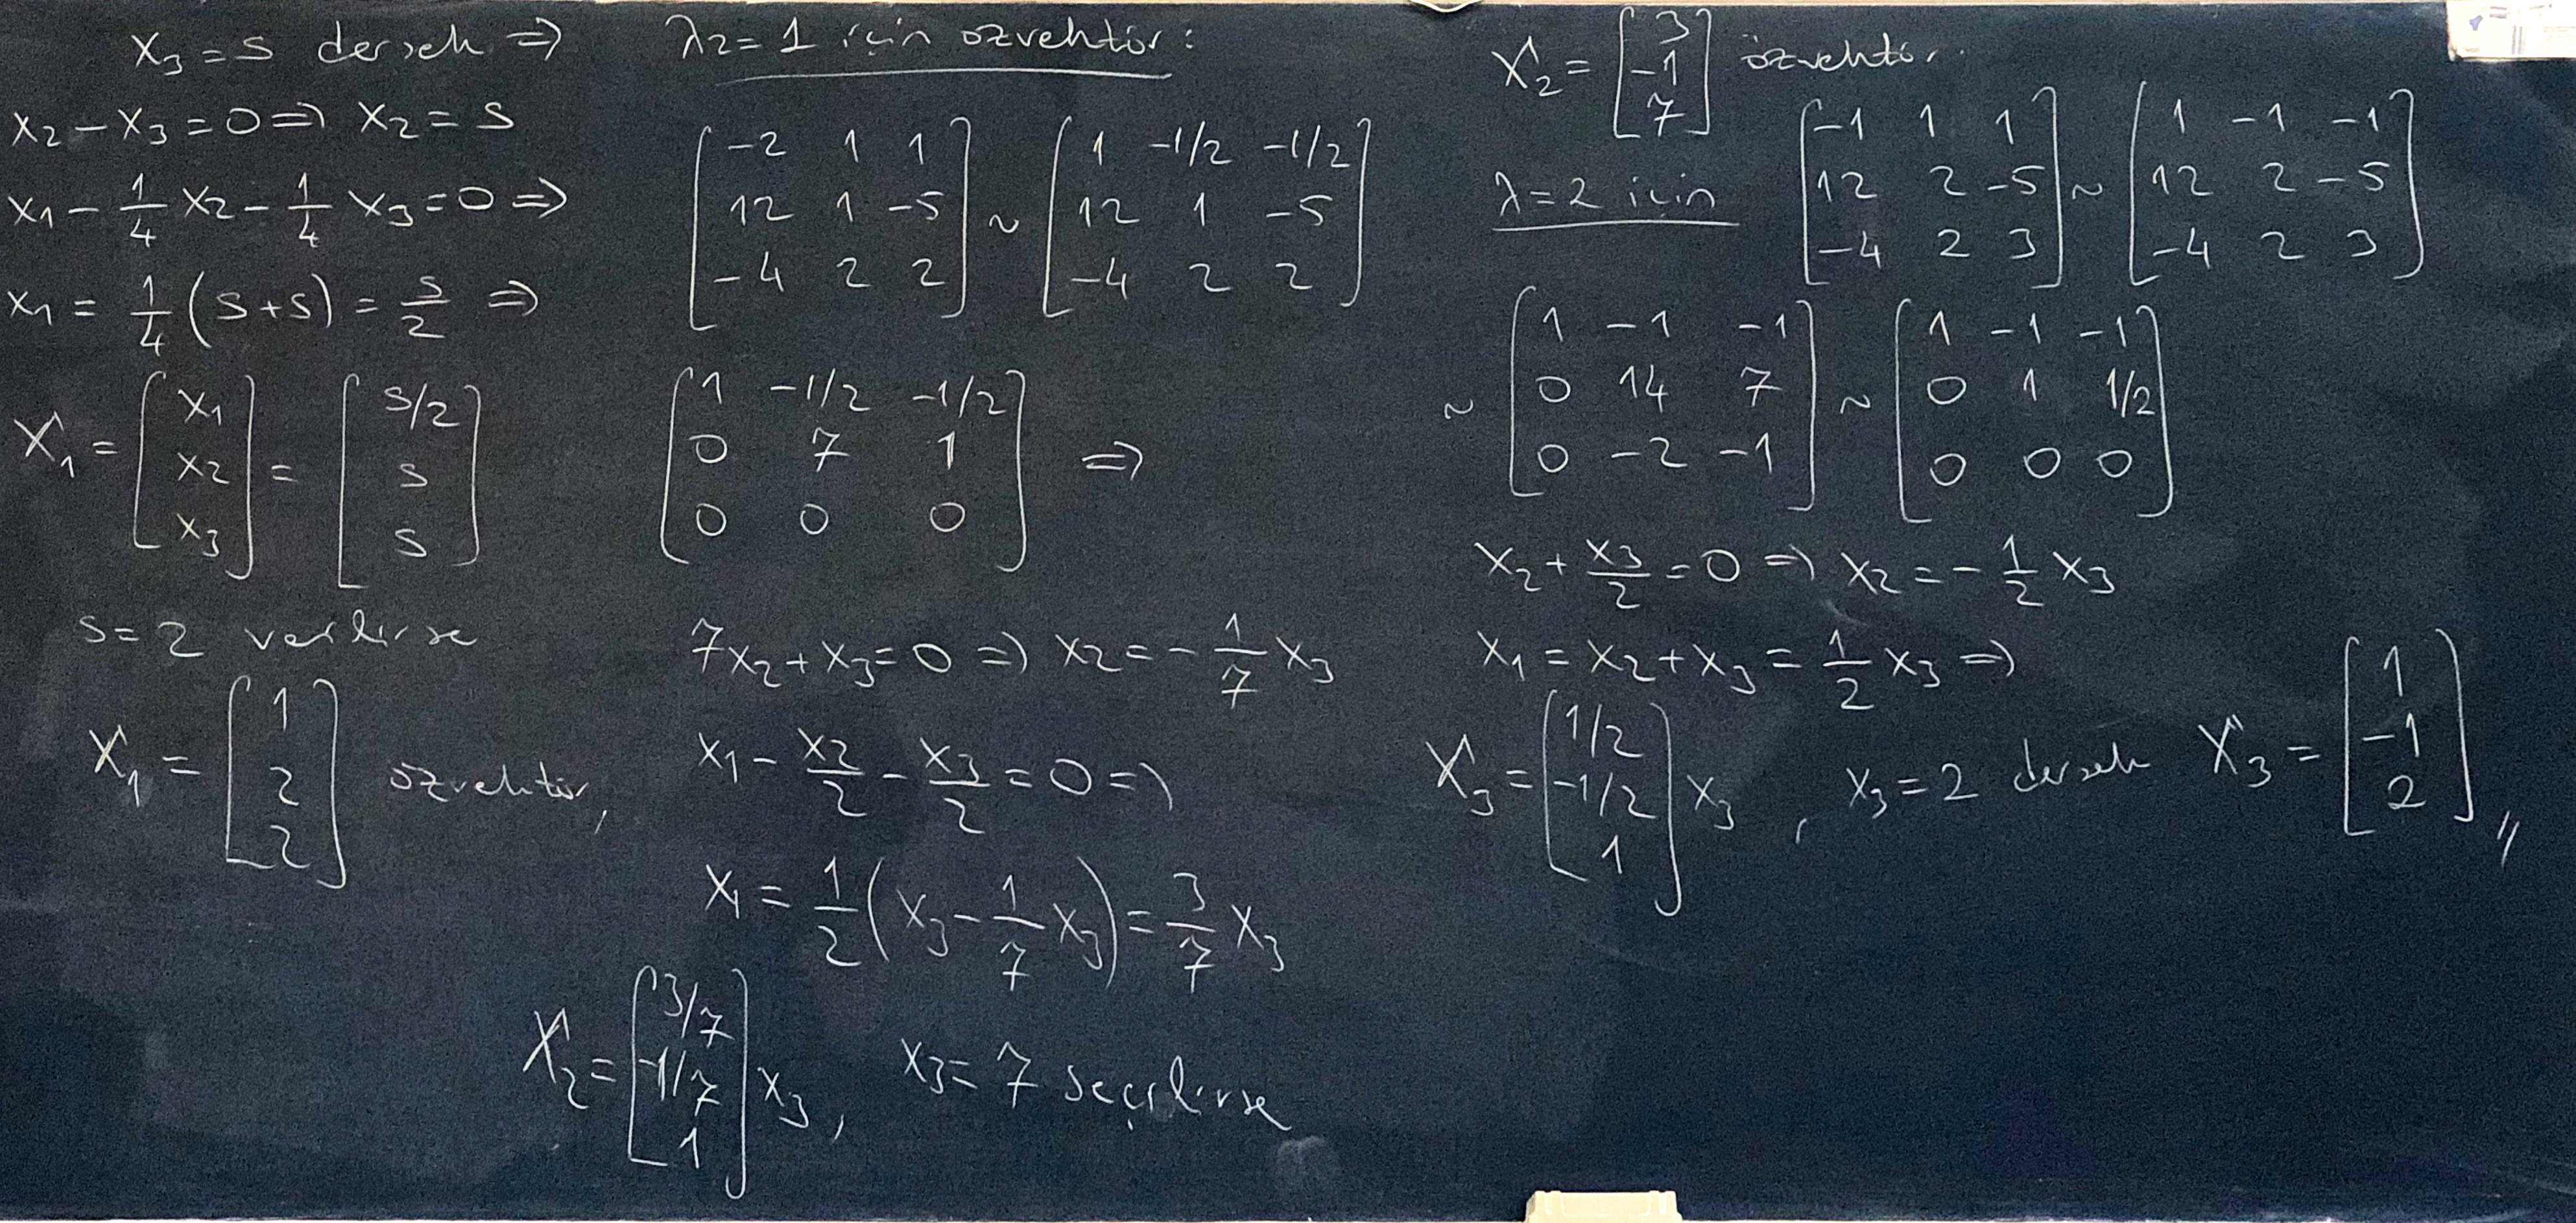 x₃ = s dersek ⇒
x₂ − x₃ = 0 ⇒ x₂ = s
x₁ − 1/4 x₂ − 1/4 x₃ = 0 ⇒
x₁ = 1/4 (s + s) = s/2 ⇒
X₁ = [x₁; x₂; x₃] = [s/2; s; s]
s = 2 verilirse
X₁ = [1; 2; 2] özvektör,
λ₂ = 1 için özvektör:
[-2 1 1; 12 1 -5; -4 2 2] ~ [1 -1/2 -1/2; 12 1 -5; -4 2 2]
[1 -1/2 -1/2; 0 7 1; 0 0 0] ⇒
7x₂ + x₃ = 0 ⇒ x₂ = − 1/7 x₃
x₁ − x₂/2 − x₃/2 = 0 ⇒
x₁ = 1/2 (x₃ − 1/7 x₃) = 3/7 x₃
X₂ = [3/7; -1/7; 1] x₃, x₃ = 7 seçilirse
X₂ = [3; -1; 7] özvektör.
λ = 2 için [-1 1 1; 12 2 -5; -4 2 3] ~ [1 -1 -1; 12 2 -5; -4 2 3]
~ [1 -1 -1; 0 14 7; 0 -2 -1] ~ [1 -1 -1; 0 1 1/2; 0 0 0]
x₂ + x₃/2 = 0 ⇒ x₂ = − 1/2 x₃
x₁ = x₂ + x₃ = 1/2 x₃ ⇒
X₃ = [1/2; -1/2; 1] x₃, x₃ = 2 dersek X₃ = [1; -1; 2] //